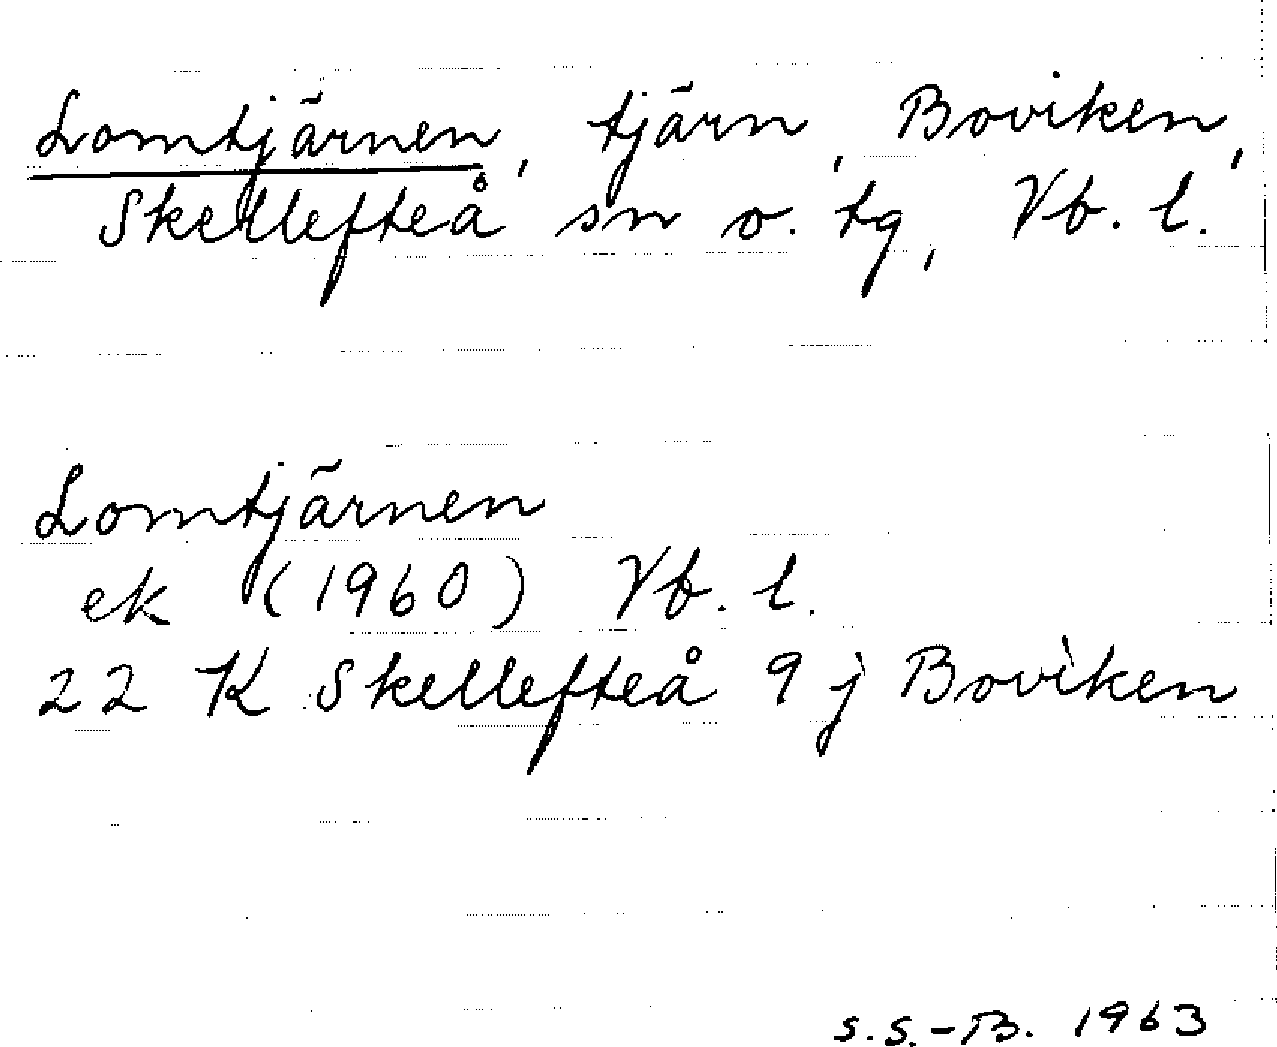 Lomtjärnen, tjärn, Boviken,
Skellefteå sn o. tg, Vb. l.
Lomtjärnen
ek (1960) Vb. l.
22 K Skellefteå 9 j Boviken
S.S.-B. 1963